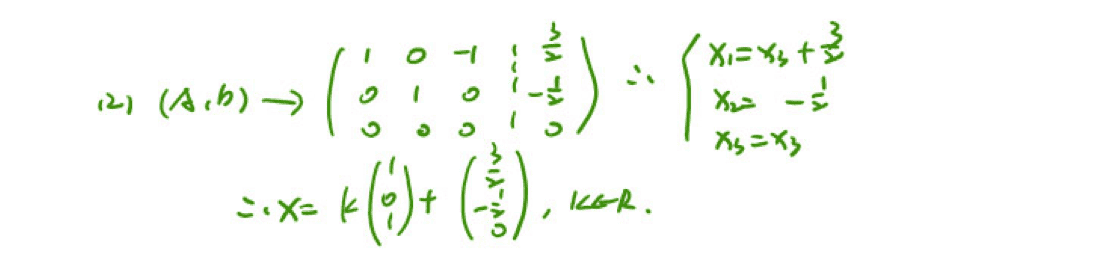 (2) (A,b) → \begin{pmatrix} 1 & 0 & -1 & \vdots & \frac{3}{2} \\ 0 & 1 & 0 & \vdots & -\frac{1}{2} \\ 0 & 0 & 0 & \vdots & 0 \end{pmatrix} ∴ \begin{cases} x_1 = x_3 + \frac{3}{2} \\ x_2 = -\frac{1}{2} \\ x_3 = x_3 \end{cases}
∴ x = k \begin{pmatrix} 1 \\ 0 \\ 1 \end{pmatrix} + \begin{pmatrix} \frac{3}{2} \\ -\frac{1}{2} \\ 0 \end{pmatrix}, k∈R.